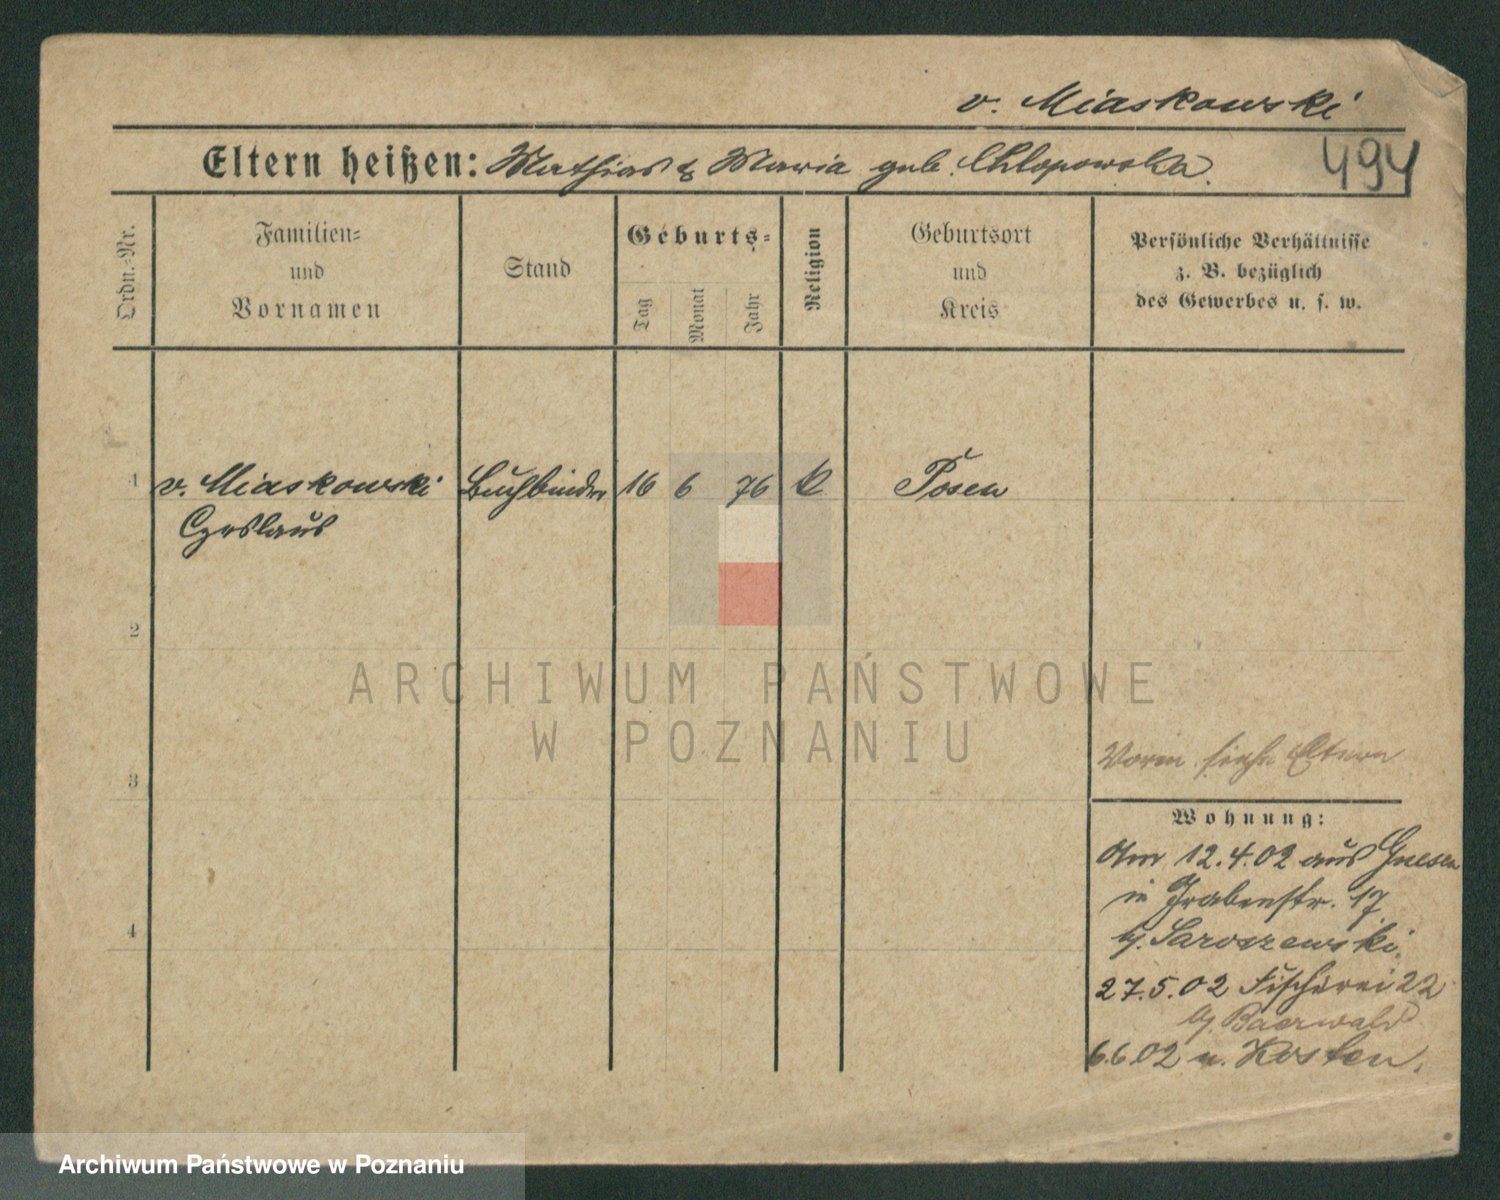 v. Miaskowski
Eltern heißen: Mathias & Maria geb. Chlapowska.
494
Ordn.-Nr.
Familien-
und
Vornamen
Stand
Geburts-
Tag
Monat
Jahr
Religion
Geburtsort
und
Kreis
Persönliche Verhältnisse
z. B. bezüglich
des Gewerbes u. s. w.
1 v. Miaskowski Buchbinder 16 6 76 k Posen
Czeslaus
2
3
4
Vorm siehe Eltern
Wohnung:
Am 12.4.02 aus Gnesen
in Grabenstr. 17
27.5.02 Fischerei 22
b/. Baerwald
6.6.02 n. Kosten.
ARCHIWUM PAŃSTWOWE
W POZNANIU
Archiwum Państwowe w Poznaniu